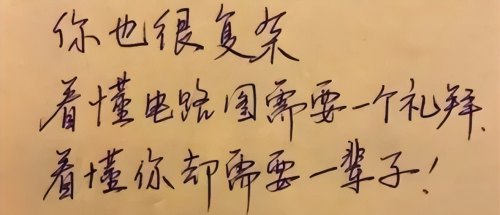 你也很复杂
看懂电路图需要一个礼拜、
看懂你却需要一辈子！